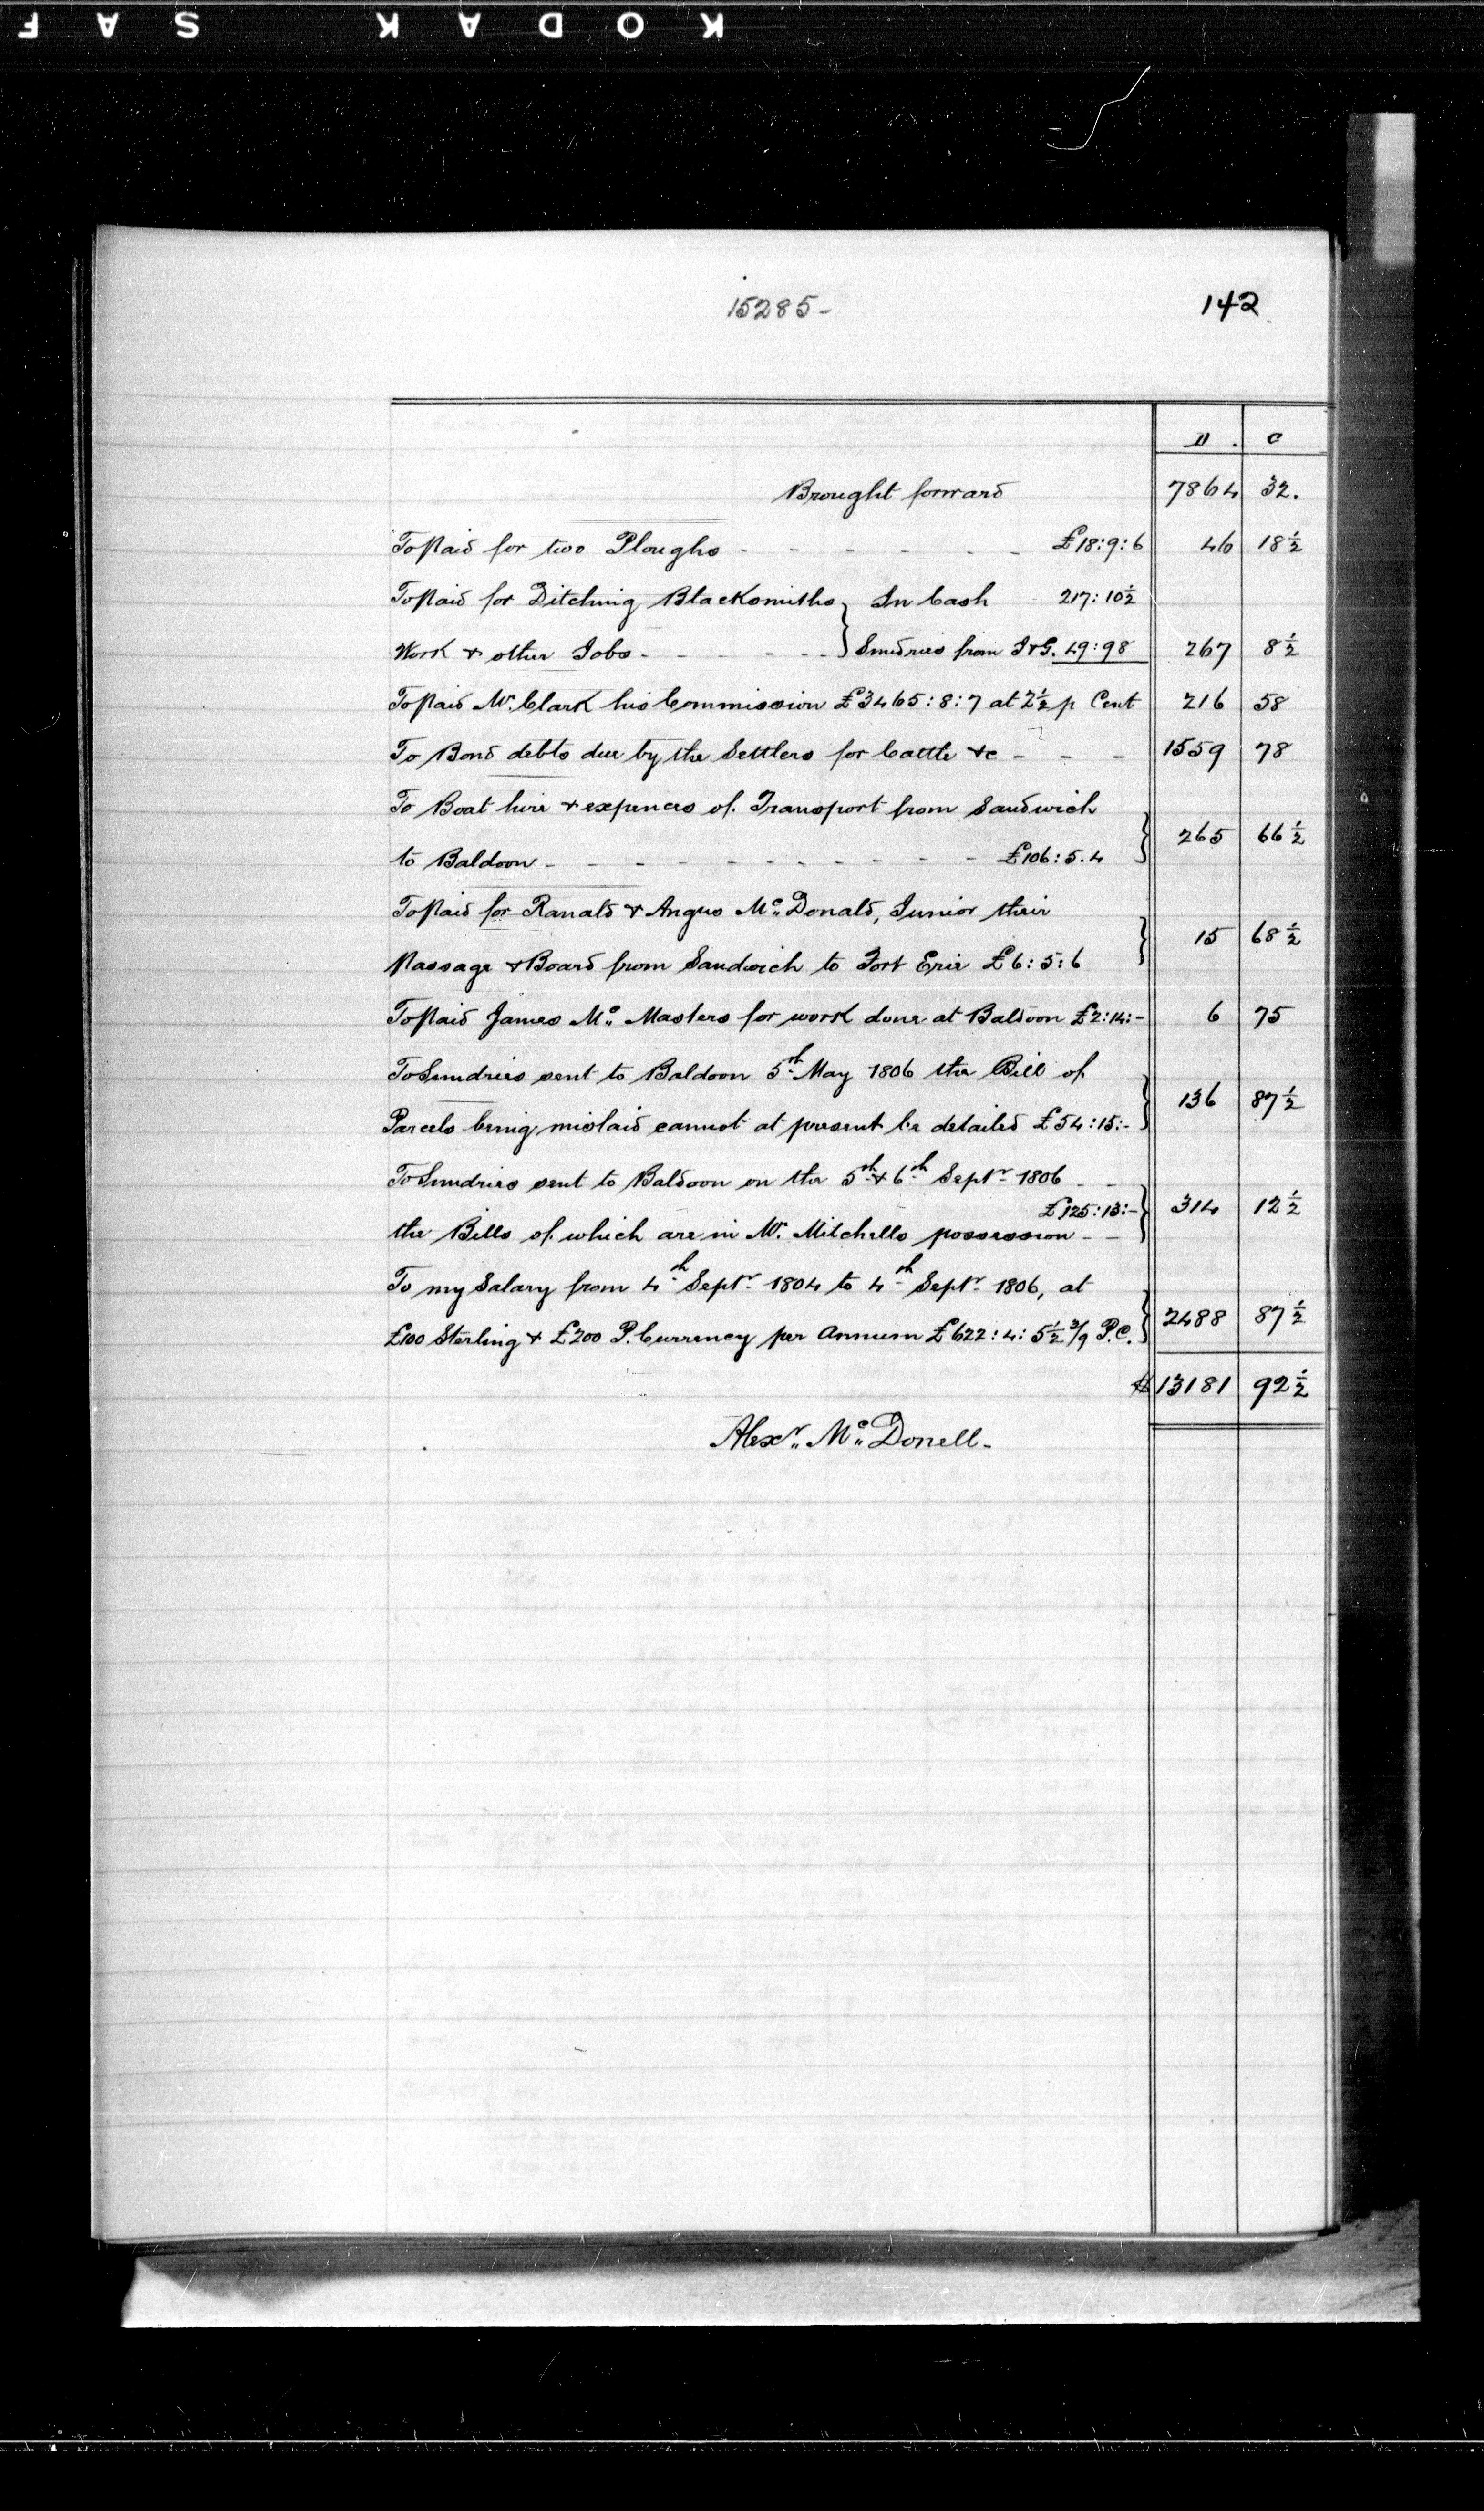 KODAK SAF
15285-
142
D. C
Brought forward 7864 32.
To Paid for two Ploughs - - - - - - £18:9:6 46 18½
To Paid for Ditching Blacksmiths } In Cash 217:10½
Work & other Jobs - - - - - } Sundries from I&G. 49:98 267 8½
To Paid Mr. Clark his Commission £3465:8:7 at 2½ p Cent 216 58
To Bond debts due by the Settlers for Cattle &c - - - 1559 78
To Boat hire & expences of Transport from Sandwich
to Baldoon - - - - - - - - - - £106:5.4 } 265 66½
To Paid for Ranald & Angus Mc. Donald, Junior their
Passage & Board from Sandwich to Fort Erie £6:5:6 } 15 68½
To Paid James Mc. Masters for work done at Baldoon £2:14:- 6 75
To Sundries sent to Baldoon 5th May 1806 the Bill of
Parcels being mislaid cannot at present be detailed £54:15:- } 136 87½
To Sundries sent to Baldoon on the 5th & 6th Septr 1806 - -
£125:13:- } 314 12½
the Bills of which are in Mr. Mitchells possession - -
To my Salary from 4th Septr 1804 to 4th Septr 1806, at
£100 Sterling & £200 P. Currency per Annum £622:4:5½ 3/9 P.C. } 2488 87½
$ 13181 92½
Alexr. Mc. Donell-